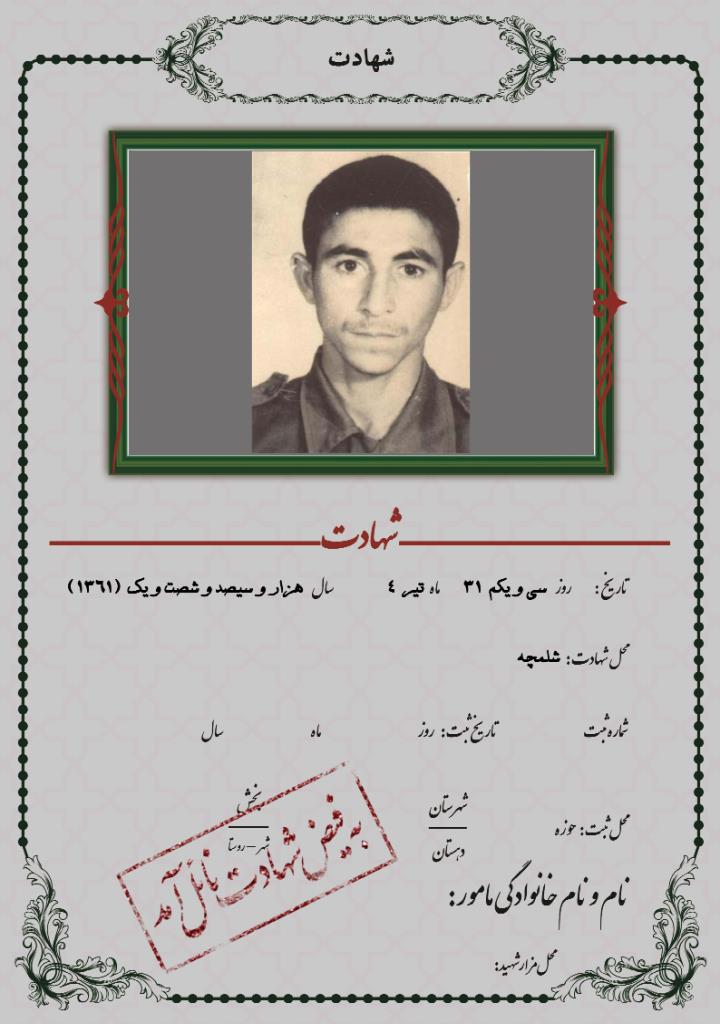 شهادت
شهادت
تاریخ: روز سی و یکم ۳۱ ماه تیر ٤ سال هزار و سیصد و شصت و یک (۱۳٦۱)
محل شهادت: شلمچه
شماره ثبت تاریخ ثبت: روز ماه سال
محل ثبت: حوزه شهرستان بخش
دهستان شهر-روستا
به فیض شهادت نائل آمد
نام و نام خانوادگی مامور:
محل مزار شهید: